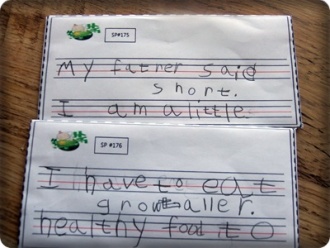 SP#175
My father said
short.
I am a little
SP #176
I have to eat
grow taller.
healthy food to